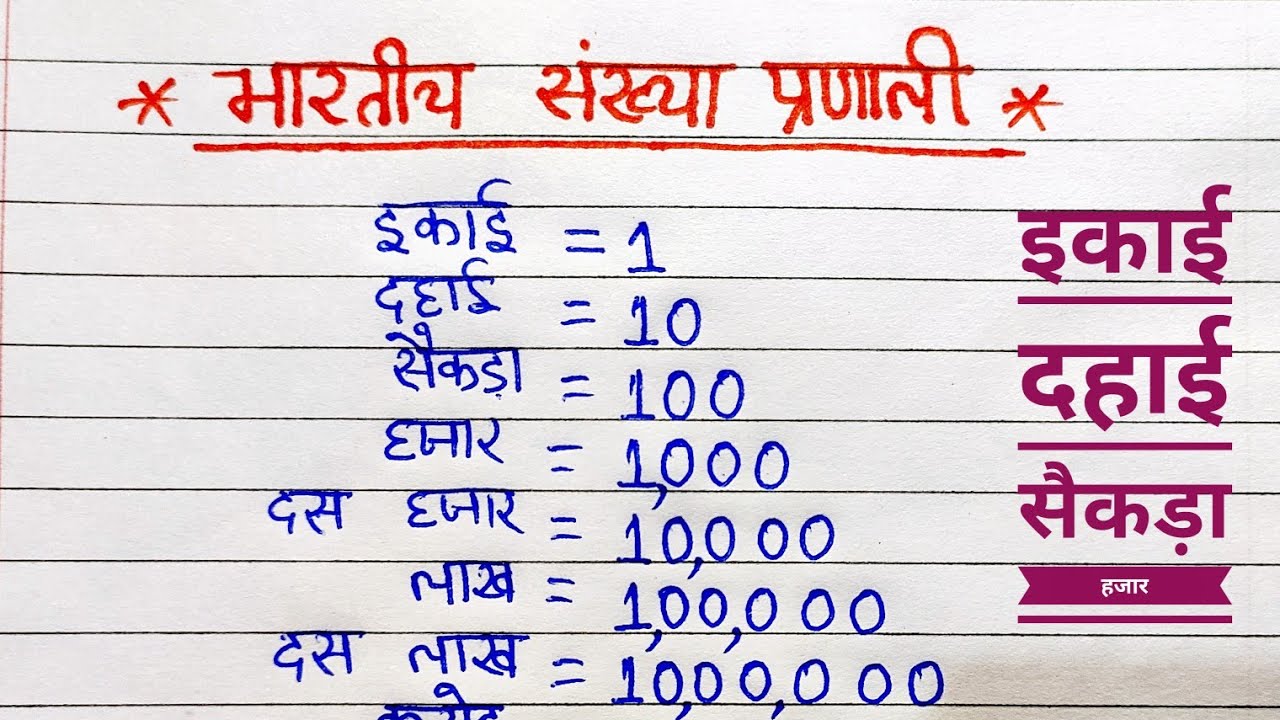 * भारतीय संख्या प्रणाली *
इकाई = 1
दहाई = 10
सैकड़ा = 100
हजार = 1,000
दस हजार = 10,000
लाख = 1,00,000
दस लाख = 10,00,000
इकाई
दहाई
सैकड़ा
हजार